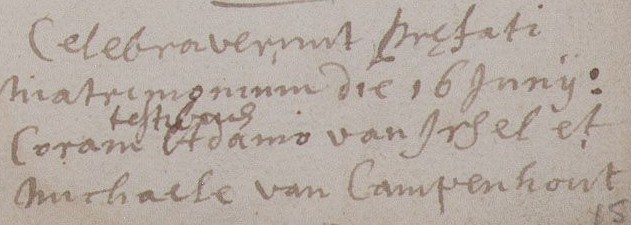 Celebraverunt Præfati
Matrimonium die 16 Junij:
testibus
Coram Adamo van Irsel et
Michaele van Campenhout
15